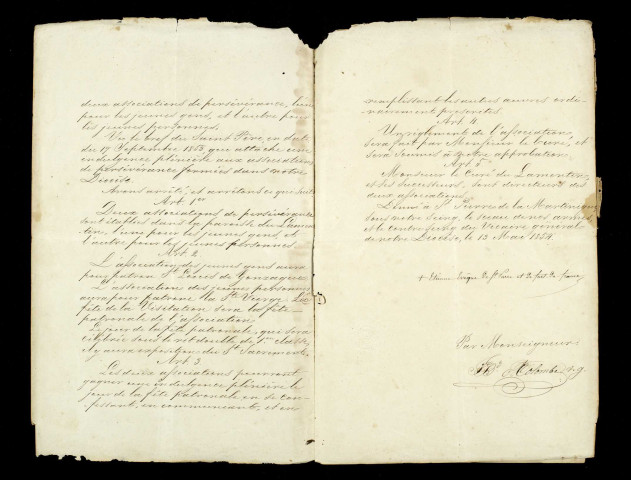 deux associations de persévérance, l'une
pour les jeunes gens, et l'autre pour
les jeunes personnes.
Vu le bref du Saint Père, en date
du 17 Septembre 1853, qui attache une
indulgence plénière aux associations
de persévérance formées dans notre
Diocèse.
Avons arrêté, et arrêtons ce qui suit
Art. 1er
Deux associations de persévérance
sont établies dans la paroisse du Lamen-
tin, l'une pour les jeunes gens, et
l'autre pour les jeunes personnes.
Art. 2
L'association des jeunes gens aura
pour patron St Louis de Gonzague.
L'association des jeunes personnes
aura pour patronne la Ste Vierge. La
fête de la Visitation sera la fête
patronale de l'association.
Le jour de la fête patronale, qui sera
célébrée sous le rit double de 1ère classe,
il y aura exposition du St Sacrement.
Art. 3
Les deux associations peuvent
gagner une indulgence plénière le
jour de la fête Patronale en se con-
fessant, en communiant, et en
remplissant les autres œuvres ordi-
nairement prescrites.
Art. 4
Un règlement de l'association
sera fait par Monsieur le Curé, et
sera soumis à notre approbation.
Art. 5
Monsieur le Curé du Lamentin,
et ses successeurs, sont directeurs des
deux associations.
Donné à St Pierre de la Martinique
sous notre seing, le sceau de nos armes,
et le contre-seing du Vicaire général
de notre Diocèse, le 13 Mai 1854.
+ Etienne évêque de St Pierre et de fort de france
Par Monseigneur